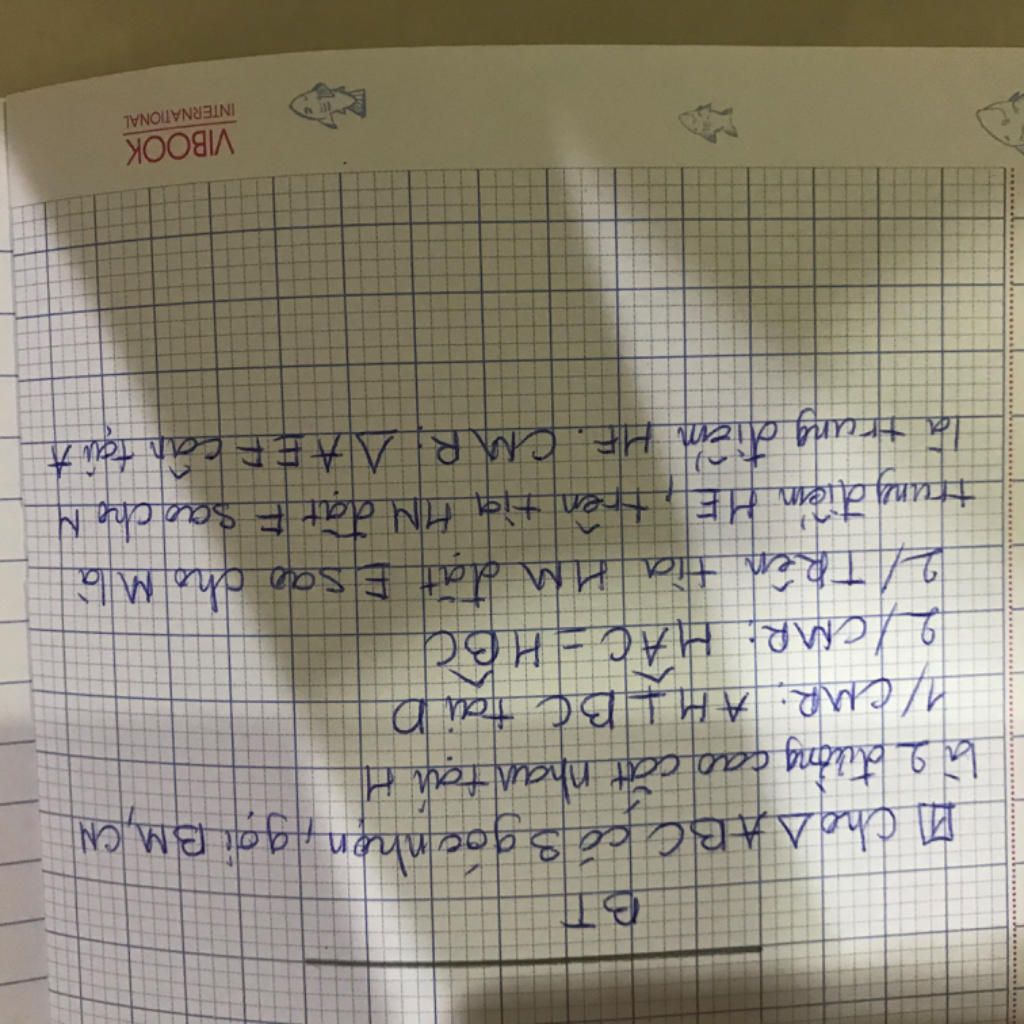 BT
1 Cho △ABC có 3 góc nhọn, gọi BM, CN
là 2 đường cao cắt nhau tại H
1/ CMR: AH ⊥ BC tại D
2/ CMR: HÂC = HB̂C
2/ TRên tia HM đặt E sao cho M là
trung điểm HE, trên tia HN đặt F sao cho N
là trung điểm HF. CMR: △AEF cân tại A
VIBOOK
INTERNATIONAL